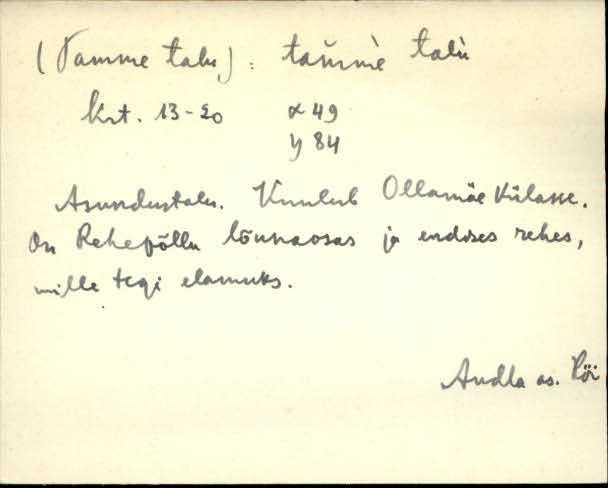 (Tamme talu) : tam̆mè talù
Krt. 13-20 x 49
y 84
Asundustalu. Kuulub Ollamäe külasse.
On Rehepõllu lõunaosas ja endises rehes,
mille tegi elamuks.
Audla as. Pöi